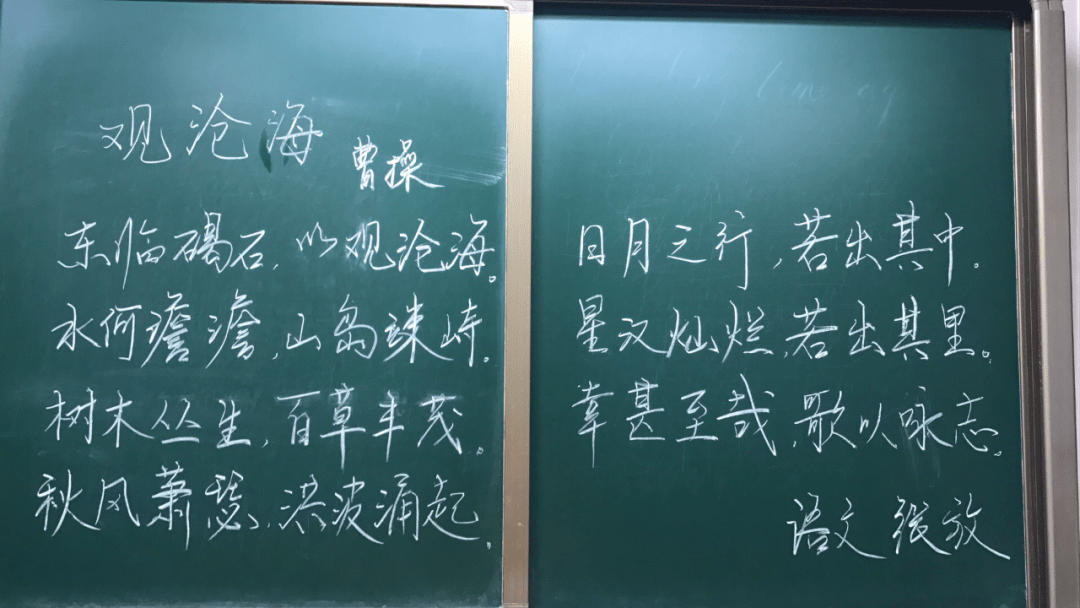 观沧海
曹操
东临碣石，以观沧海。
水何澹澹，山岛竦峙。
树木丛生，百草丰茂。
秋风萧瑟，洪波涌起。
日月之行，若出其中。
星汉灿烂，若出其里。
幸甚至哉，歌以咏志。
语文 张放